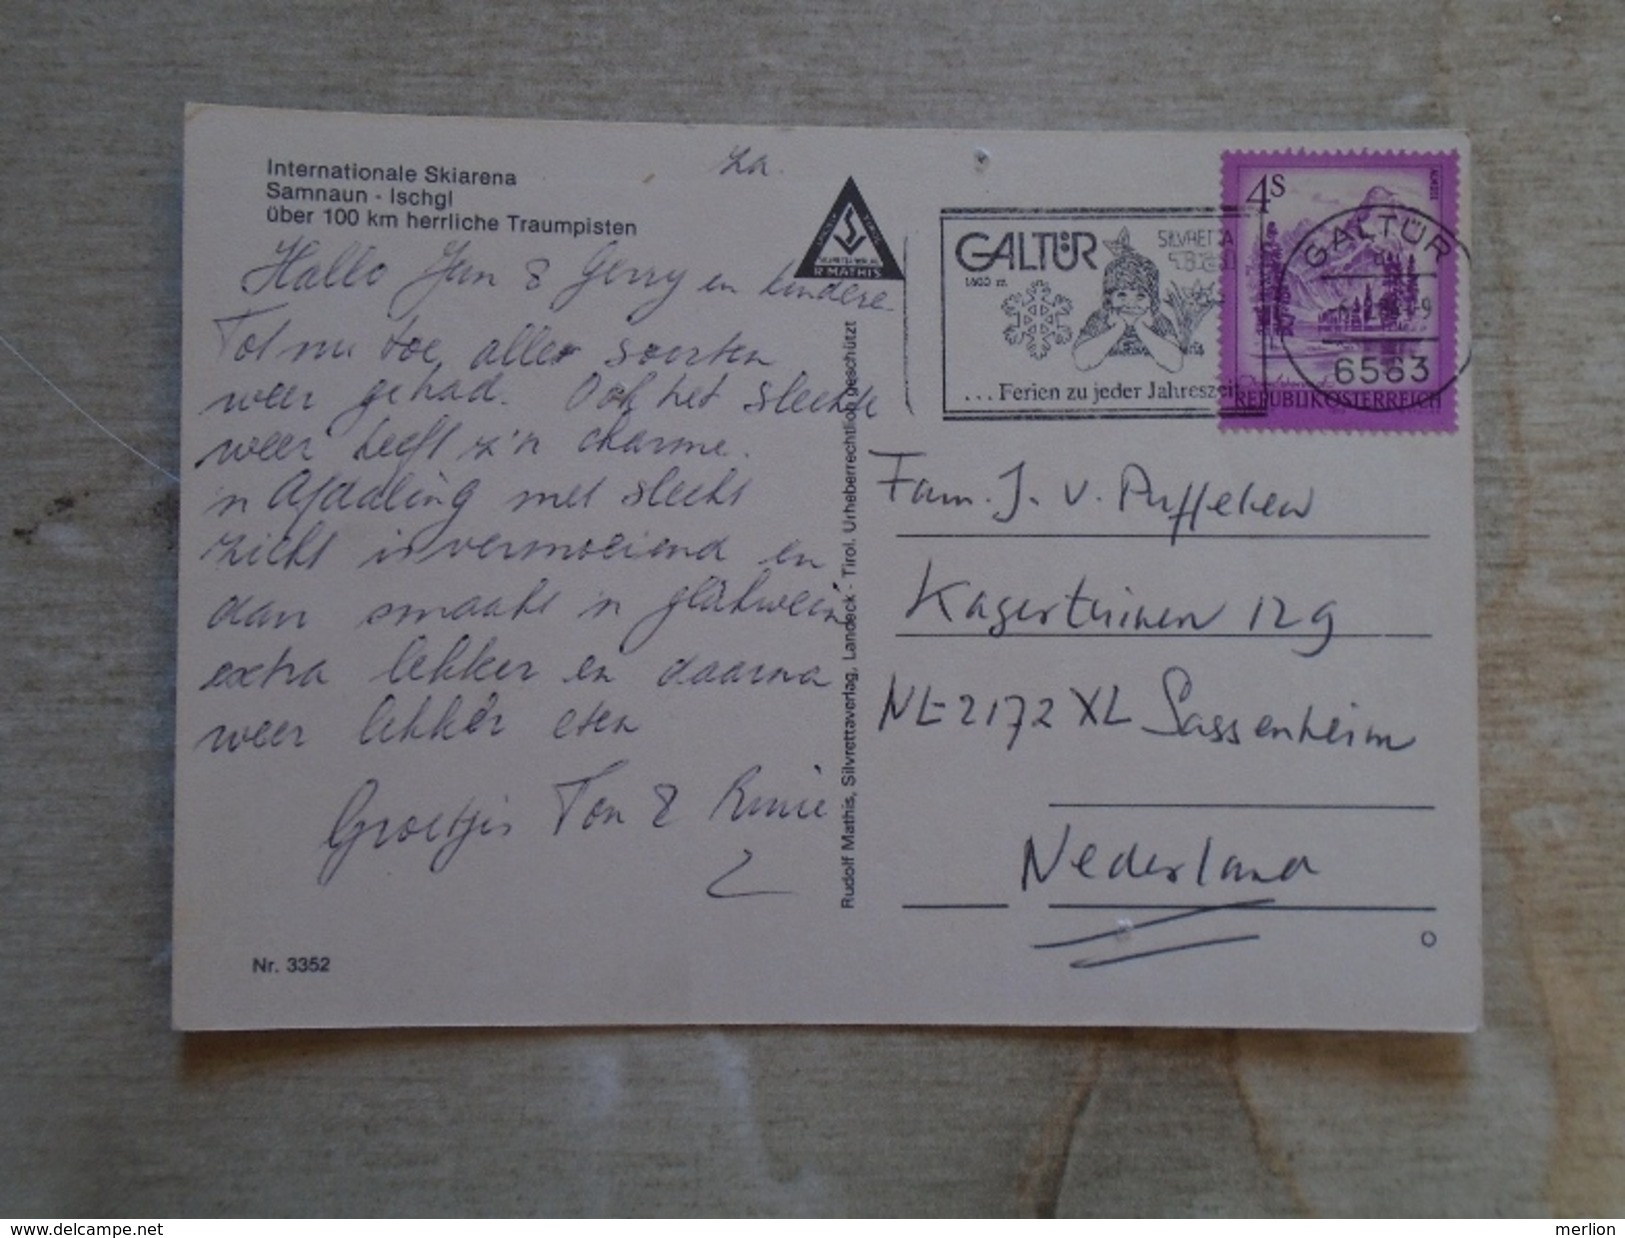 Internationale Skiarena
Samnaun - Ischgl
über 100 km herrliche Traumpisten
za.
R. MATHIS
Hallo Jan & Gerry en kindere
Tot nu toe aller soorten
weer gehad. Ook het slechte
weer heeft z'n charme.
'n Afdaling met slecht
zicht is vermoeiend en
dan smaakt 'n glühwein
extra lekker en daarna
weer lekker eten
Groetjes Ton & Rinie
Nr. 3352
Rudolf Mathis, Silvrettaverlag, Landeck - Tirol. Urheberrechtlich geschützt
GALTÜR
1600 m
SILVRETTA
...Ferien zu jeder Jahreszeit
4S
ALMSEE
REPUBLIK ÖSTERREICH
GALTÜR
6563
Fam. J. v. Puffelen
Kagertuinen 129
NL-2172 XL Sassenheim
Nederland
www.delcampe.net
merlion